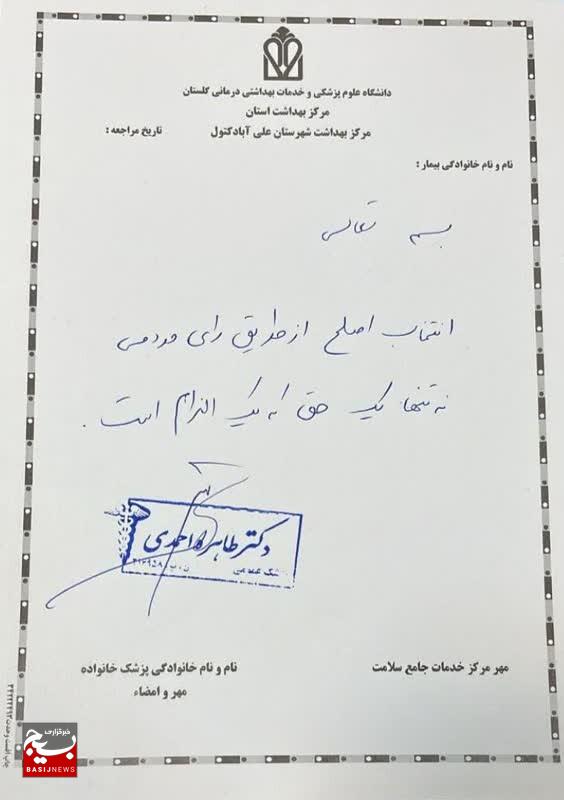 دانشگاه علوم پزشکی و خدمات بهداشتی درمانی گلستان
مرکز بهداشت استان
مرکز بهداشت شهرستان علی آبادکتول
تاریخ مراجعه :
نام و نام خانوادگی بیمار :
بسمه تعالی
انتخاب اصلح از طریق رای مردمی
نه تنها یک حق که یک الزام است .
دکتر طاهره احمدی
مهر مرکز خدمات جامع سلامت
نام و نام خانوادگی پزشک خانواده
مهر و امضاء
خبرگزاری
بسیج
BASIJNEWS